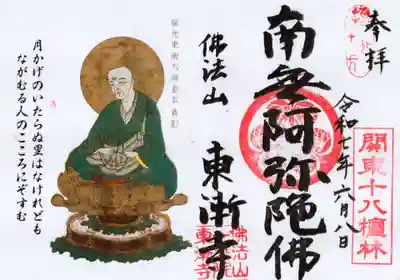 奉拝
関東十八檀林
令和七年六月八日
南無阿弥陀佛
佛法山
東漸寺
佛法山
東漸寺
月かげのいたらぬ里はなけれども
ながむる人のこころにぞすむ